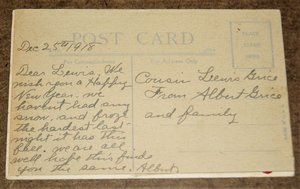 POST CARD
Dec 25th 1918
PLACE
STAMP
HERE
For Address Only
Dear Lewis, We
wish you a Happy
New Year. we
havent had any
snow. and froze
the hardest last
night it has this
fall. we are all
well hope this finds
you the same. Albert
Cousin Lewis Grice
From Albert Grice
and family